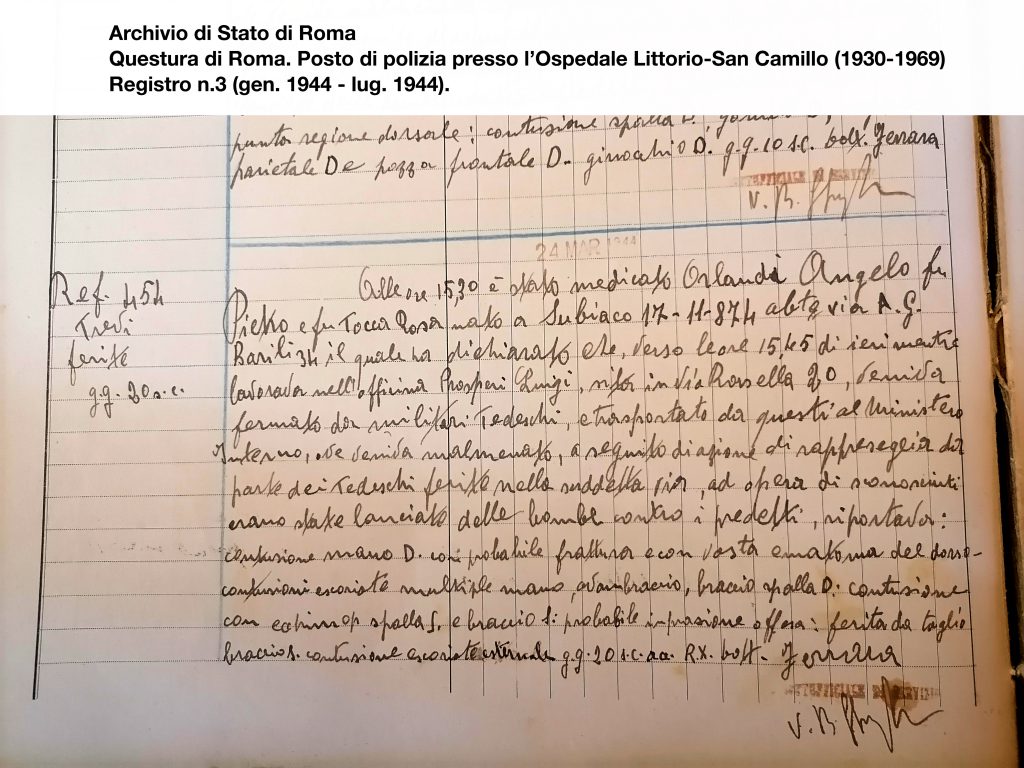 Archivio di Stato di Roma
Questura di Roma. Posto di polizia presso l'Ospedale Littorio-San Camillo (1930-1969)
Registro n.3 (gen. 1944 - lug. 1944).
punta regione dorsale; contusione spalla
parietale D e pozza frontale D. ginocchio D. g.g. 10 s.c. dott. Ferrara
SOTTUFFICIALE DI SERVIZIO
24 MAR 1944
Ref. 454
Tredi
ferite
g.g. 20 s.c.
Alle ore 15,30 è stato medicato Orlandi Angelo fu
Pietro e fu Tocca Rosa nato a Subiaco 17-11-874 abte via A.G.
Barili 34 il quale ha dichiarato che, verso le ore 15,45 di ieri mentre
lavorava nell'officina Prosperi Luigi, sita in Via Rasella 20, veniva
fermato da militari Tedeschi, e trasportato da questi al Ministero
Interno, ove veniva malmenato, a seguito di azione di rappreseglia da
parte dei Tedeschi ferite nella suddetta via, ad opera di sconosciuti
erano state lanciate delle bombe contro i predetti, riportava:
contusione mano D. con probabile frattura e con vasta ematoma del dorso-
contusioni escoriate multiple mano, avambraccio, braccio spalla D: contusione
con spalla S. e braccio S: probabile offesa: ferita da taglio
braccio S. contusione escoriate g.g. 20 s.c. a.c. R.X. dott. Ferrara
SOTTUFFICIALE DI SERVIZIO